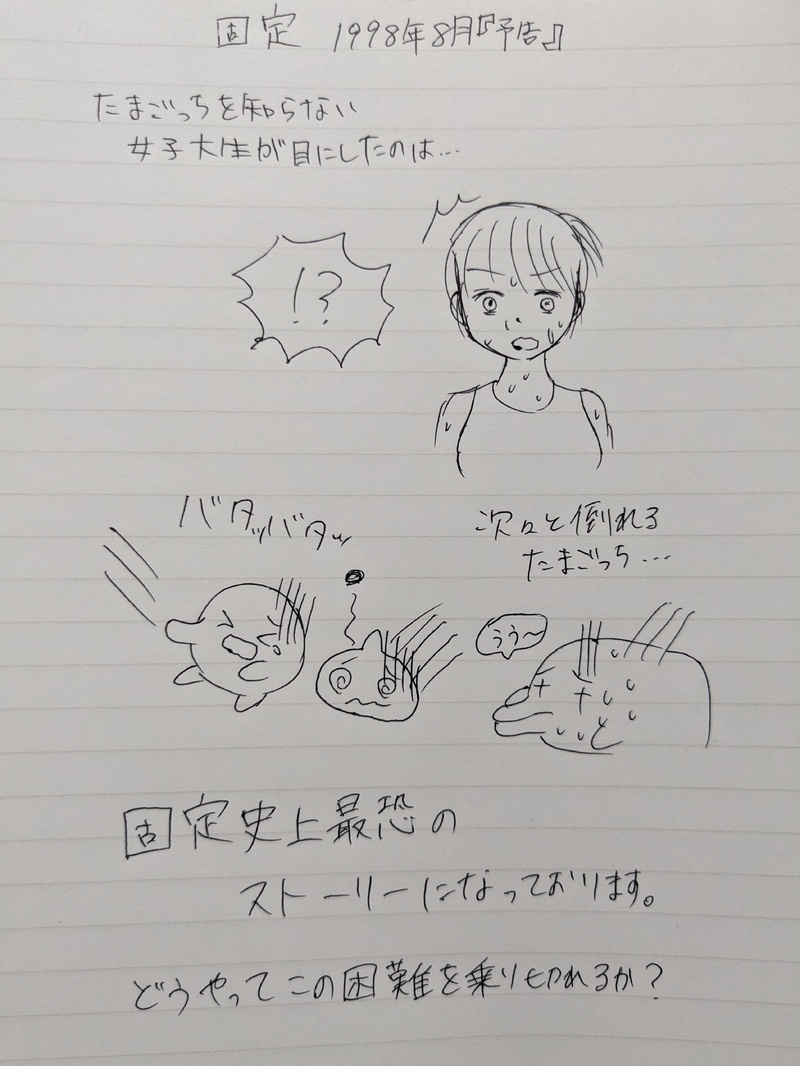 固定 1998年8月『予告』
たまごっちを知らない
女子大生が目にしたのは…
!?
バタッバタッ
次々と倒れる
たまごっち…
うう〜
固定史上最恐の
ストーリーになっております。
どうやってこの困難を乗り切れるか?